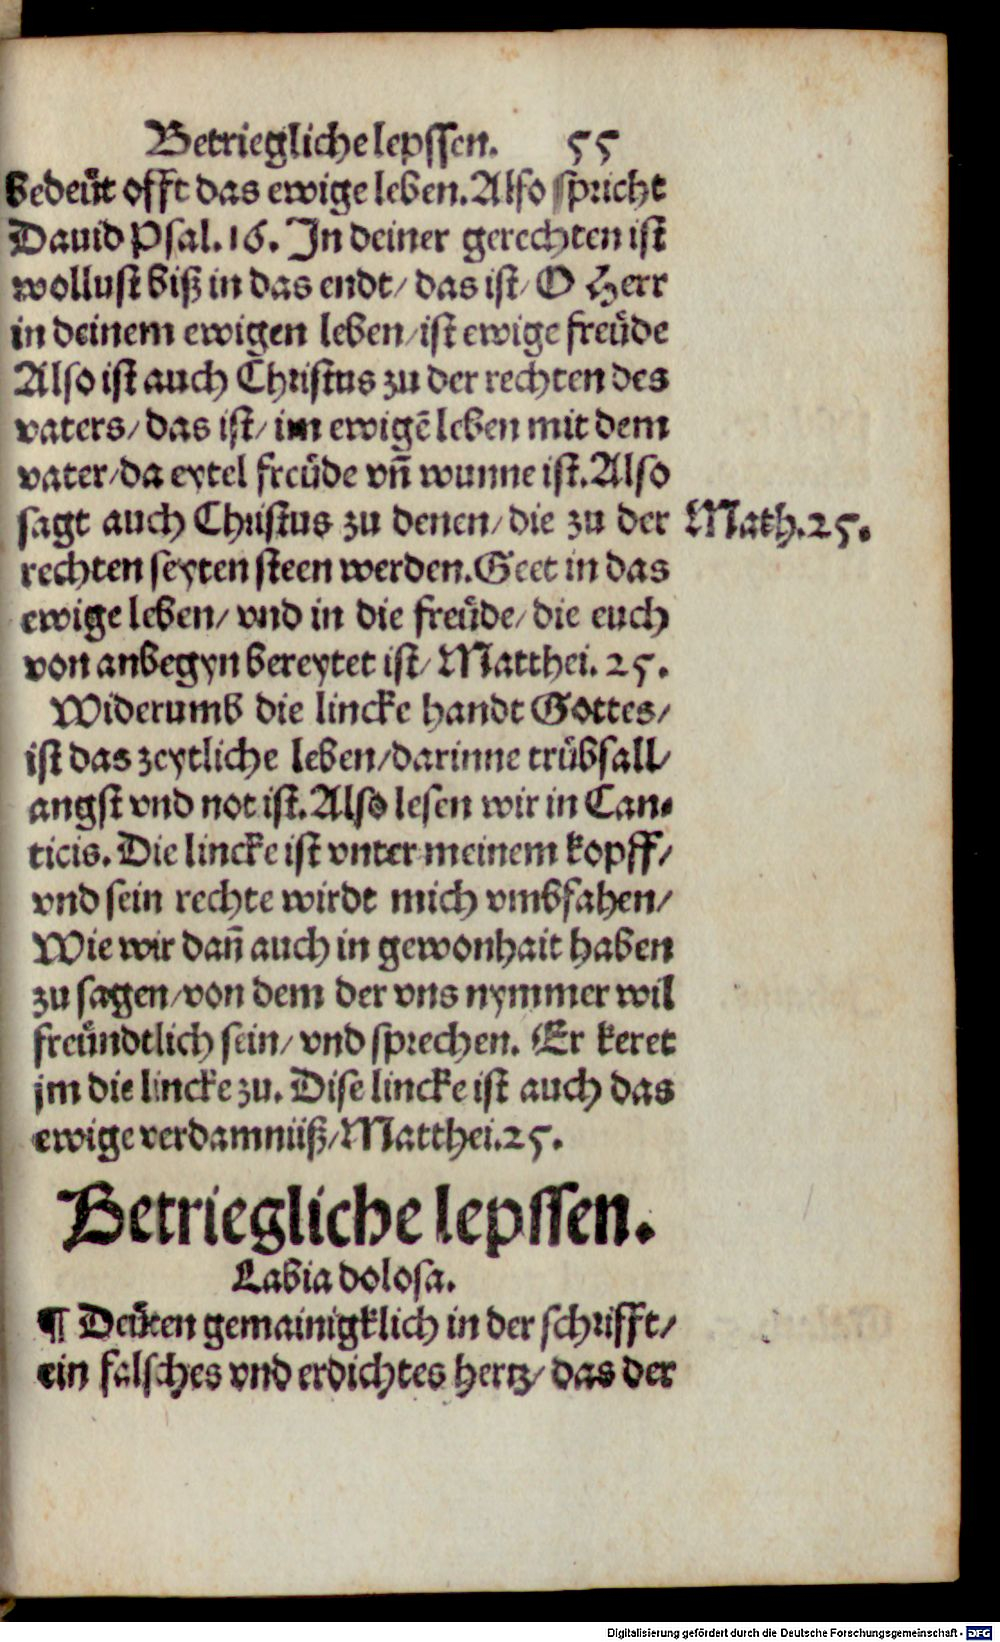 Betriegliche lepssen. 55
bedeüt offt das ewige leben. Also spricht
Dauid Psal. 16. In deiner gerechten ist
wollust biß in das endt/ das ist/ O Herr
in deinem ewigen leben/ ist ewige freüde
Also ist auch Christus zu der rechten des
vaters/ das ist/ im ewigē leben mit dem
vater/ da eytel freüde vn̄ wunne ist. Also
sagt auch Christus zu denen/ die zu der
Math. 25.
rechten seyten steen werden. Geet in das
ewige leben/ vnd in die freüde/ die euch
von anbegyn bereytet ist/ Matthei. 25.
Widerumb die lincke handt Gottes/
ist das zeytliche leben/ darinne trübsall/
angst vnd not ist. Also lesen wir in Can-
ticis. Die lincke ist vnter meinem kopff/
vnd sein rechte wirdt mich vmbfahen/
Wie wir dan̄ auch in gewonhait haben
zu sagen/ von dem der vns nymmer wil
freündtlich sein/ vnd sprechen. Er keret
jm die lincke zu. Dise lincke ist auch das
ewige verdamnüß/ Matthei. 25.
Betriegliche lepssen.
Labia dolosa.
¶ Deüten gemainigklich in der schrifft/
ein falsches vnd erdichtes hertz/ das der
Digitalisierung gefördert durch die Deutsche Forschungsgemeinschaft - DFG